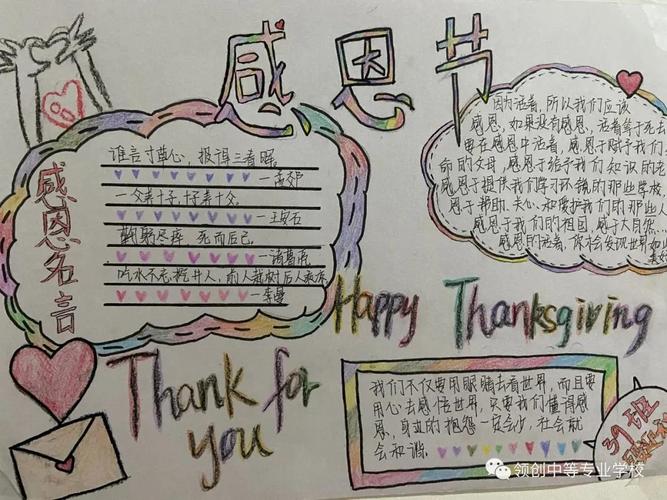 感恩节
感恩名言
谁言寸草心，报得三春晖
一孟郊
一父养十子，十子养十父
一王安石
鞠躬尽瘁 死而后已
一诸葛亮
吃水不忘挖井人，前人栽树后人乘凉
因为活着，所以我们应该
感恩，如果没有感恩，活着等于死去
要在感恩中活着，感恩于赋予我们生
命的父母，感恩于给予我们知识的老
感恩于提供我们学习环境的那些学校
恩于帮助、关心和爱护我们的那些人
感恩于我们的祖国，感于大自然...
感恩的活着，你会发现世界如此
美好
Happy Thanksgiving
Thank for
you
我们不仅要用眼睛去看世界，而且要
用心去感悟世界，只要我们懂得感
恩，身边的抱怨一定会少，社会就
会和谐.
31班
领创中等专业学校